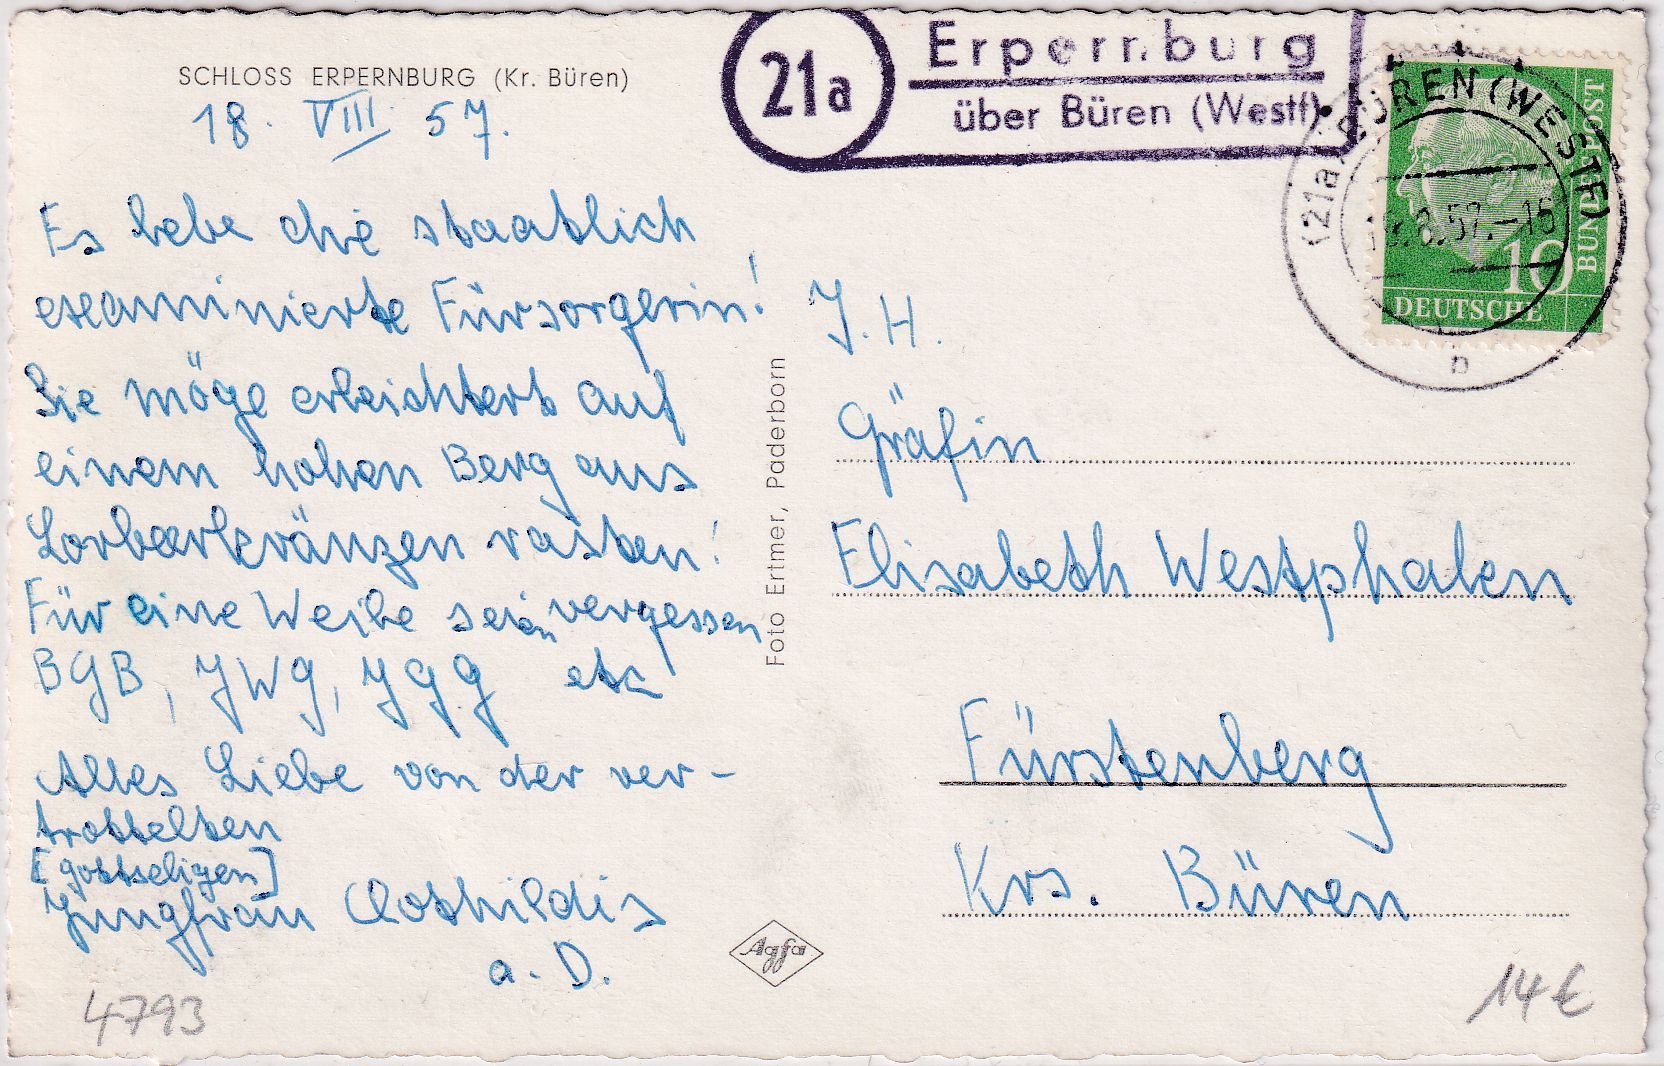 SCHLOSS ERPERNBURG (Kr. Büren)
18. VIII 57.
Es lebe die staatlich
examinierte Fürsorgerin!
Sie möge erleichtert auf
einem hohen Berg aus
Lorbeerkränzen rasten!
Für eine Weile seien vergessen
BGB, JWG, JGG etc
Alles Liebe von der ver-
trottelten
[gottseligen]
Jungfrau Clothildis
a. D.
4793
Foto Ertmer, Paderborn
Agfa
21a
Erpernburg
über Büren (Westf)
(21a) BÜREN (WESTF)
8.57.-16
b
10
DEUTSCHE
BUNDESPOST
J. H.
Gräfin
Elisabeth Westphalen
Fürstenberg
Krs. Büren
14 €